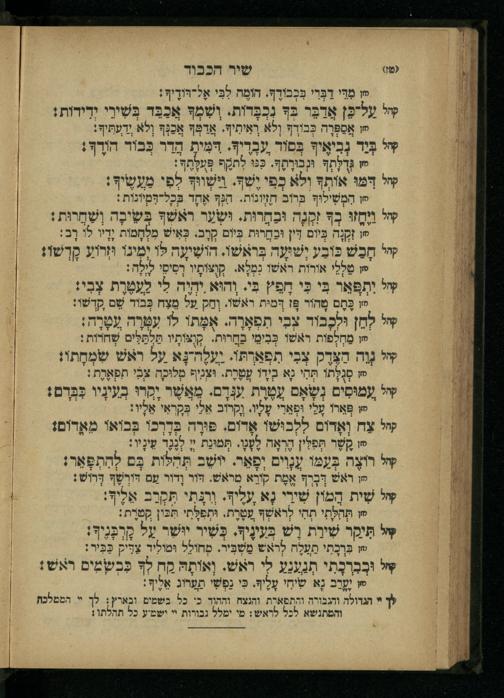 (טז) שיר הכבוד
חזן מִדֵּי דַבְּרִי בִּכְבוֹדֶךָ. הוֹמֶה לִבִּי אֶל־דּוֹדֶיךָ:
קהל עַל־כֵּן אֲדַבֵּר בְּךָ נִכְבָּדוֹת. וְשִׁמְךָ אֲכַבֵּד בְּשִׁירֵי יְדִידוֹת:
חזן אֲסַפְּרָה כְבוֹדְךָ וְלֹא רְאִיתִיךָ. אֲדַמְּךָ אֲכַנְּךָ וְלֹא יְדַעְתִּיךָ:
קהל בְּיַד נְבִיאֶיךָ בְּסוֹד עֲבָדֶיךָ. דִּמִּיתָ הֲדַר כְּבוֹד הוֹדֶךָ:
חזן גְּדֻלָּתְךָ וּגְבוּרָתֶךָ. כִּנּוּ לְתֹקֶף פְּעֻלָּתֶךָ:
קהל דִּמּוּ אוֹתְךָ וְלֹא כְפִי יֶשְׁךָ. וַיְשַׁוּוּךָ לְפִי מַעֲשֶׂיךָ:
חזן הִמְשִׁילוּךָ בְּרוֹב חֶזְיוֹנוֹת. הִנְּךָ אֶחָד בְּכָל־דִּמְיוֹנוֹת:
קהל וַיֶּחֱזוּ בְךָ זִקְנָה וּבַחֲרוּת. וּשְׂעַר רֹאשְׁךָ בְּשֵׂיבָה וְשַׁחֲרוּת:
חזן זִקְנָה בְּיוֹם דִּין וּבַחֲרוּת בְּיוֹם קְרָב. כְּאִישׁ מִלְחָמוֹת יָדָיו לוֹ רָב:
קהל חָבַשׁ כּוֹבַע יְשׁוּעָה בְּרֹאשׁוֹ. הוֹשִׁיעָה לּוֹ יְמִינוֹ וּזְרוֹעַ קָדְשׁוֹ:
חזן טַלְלֵי אוֹרוֹת רֹאשׁוֹ נִמְלָא. קְוֻצּוֹתָיו רְסִיסֵי לָיְלָה:
קהל יִתְפָּאֵר בִּי כִּי חָפֵץ בִּי. וְהוּא יִהְיֶה לִי לַעֲטֶרֶת צְבִי:
חזן כֶּתֶם טָהוֹר פָּז דְּמוּת רֹאשׁוֹ. וְחַק עַל מֵצַח כְּבוֹד שֵׁם קָדְשׁוֹ:
קהל לְחֵן וּלְכָבוֹד צְבִי תִפְאָרָה. אֻמָּתוֹ לוֹ עִטְּרָה עֲטָרָה:
חזן מַחְלְפוֹת רֹאשׁוֹ כְּבִימֵי בַחֲרוּת. קְוֻצּוֹתָיו תַּלְתַּלִּים שְׁחֹרוֹת:
קהל נְוֵה הַצֶּדֶק צְבִי תִפְאַרְתּוֹ. יַעֲלֶה־נָּא עַל רֹאשׁ שִׂמְחָתוֹ:
חזן סְגֻלָּתוֹ תְּהִי נָא בְיָדוֹ עֲטֶרֶת. וּצְנִיף מְלוּכָה צְבִי תִפְאֶרֶת:
קהל עֲמוּסִים נְשָׂאָם עֲטֶרֶת עִנְּדָם. מֵאֲשֶׁר יָקְרוּ בְעֵינָיו כִּבְּדָם:
חזן פְּאֵרוֹ עָלַי וּפְאֵרִי עָלָיו. וְקָרוֹב אֵלַי בְּקָרְאִי אֵלָיו:
קהל צַח וְאָדוֹם לִלְבוּשׁוֹ אָדוֹם. פּוּרָה בְּדָרְכוֹ בְּבוֹאוֹ מֵאֱדוֹם:
חזן קֶשֶׁר תְּפִלִּין הֶרְאָה לֶעָנָו. תְּמוּנַת יְיָ לְנֶגֶד עֵינָיו:
קהל רוֹצֶה בְעַמּוֹ עֲנָוִים יְפָאֵר. יוֹשֵׁב תְּהִלּוֹת בָּם לְהִתְפָּאֵר:
חזן רֹאשׁ דְּבָרְךָ אֱמֶת קוֹרֵא מֵרֹאשׁ. דּוֹר וָדוֹר עַם דּוֹרֶשְׁךָ דְּרוֹשׁ:
קהל שִׁית הֲמוֹן שִׁירַי נָא עָלֶיךָ. וְרִנָּתִי תִּקְרַב אֵלֶיךָ:
חזן תְּהִלָּתִי תְּהִי לְרֹאשְׁךָ עֲטֶרֶת. וּתְפִלָּתִי תִּכּוֹן קְטֹרֶת:
קהל תִּיקַר שִׁירַת רָשׁ בְּעֵינֶיךָ. כְּשִׁיר יוּשַׁר עַל קָרְבָּנֶיךָ:
חזן בִּרְכָתִי תַעֲלֶה לְרֹאשׁ מַשְׁבִּיר. מְחוֹלֵל וּמוֹלִיד צַדִּיק כַּבִּיר:
קהל וּבְבִרְכָתִי תְנַעֲנַע לִי רֹאשׁ. וְאוֹתָהּ קַח לְךָ כִּבְשָׂמִים רֹאשׁ:
חזן יֶעֱרַב נָא שִׂיחִי עָלֶיךָ. כִּי נַפְשִׁי תַעֲרוֹג אֵלֶיךָ:
לך יי הגדולה והגבורה והתפארת והנצח וההוד כי כל בשמים ובארץ: לך יי הממלכה
והמתנשא לכל לראש: מי ימלל גבורות יי ישמיע כל תהלתו: